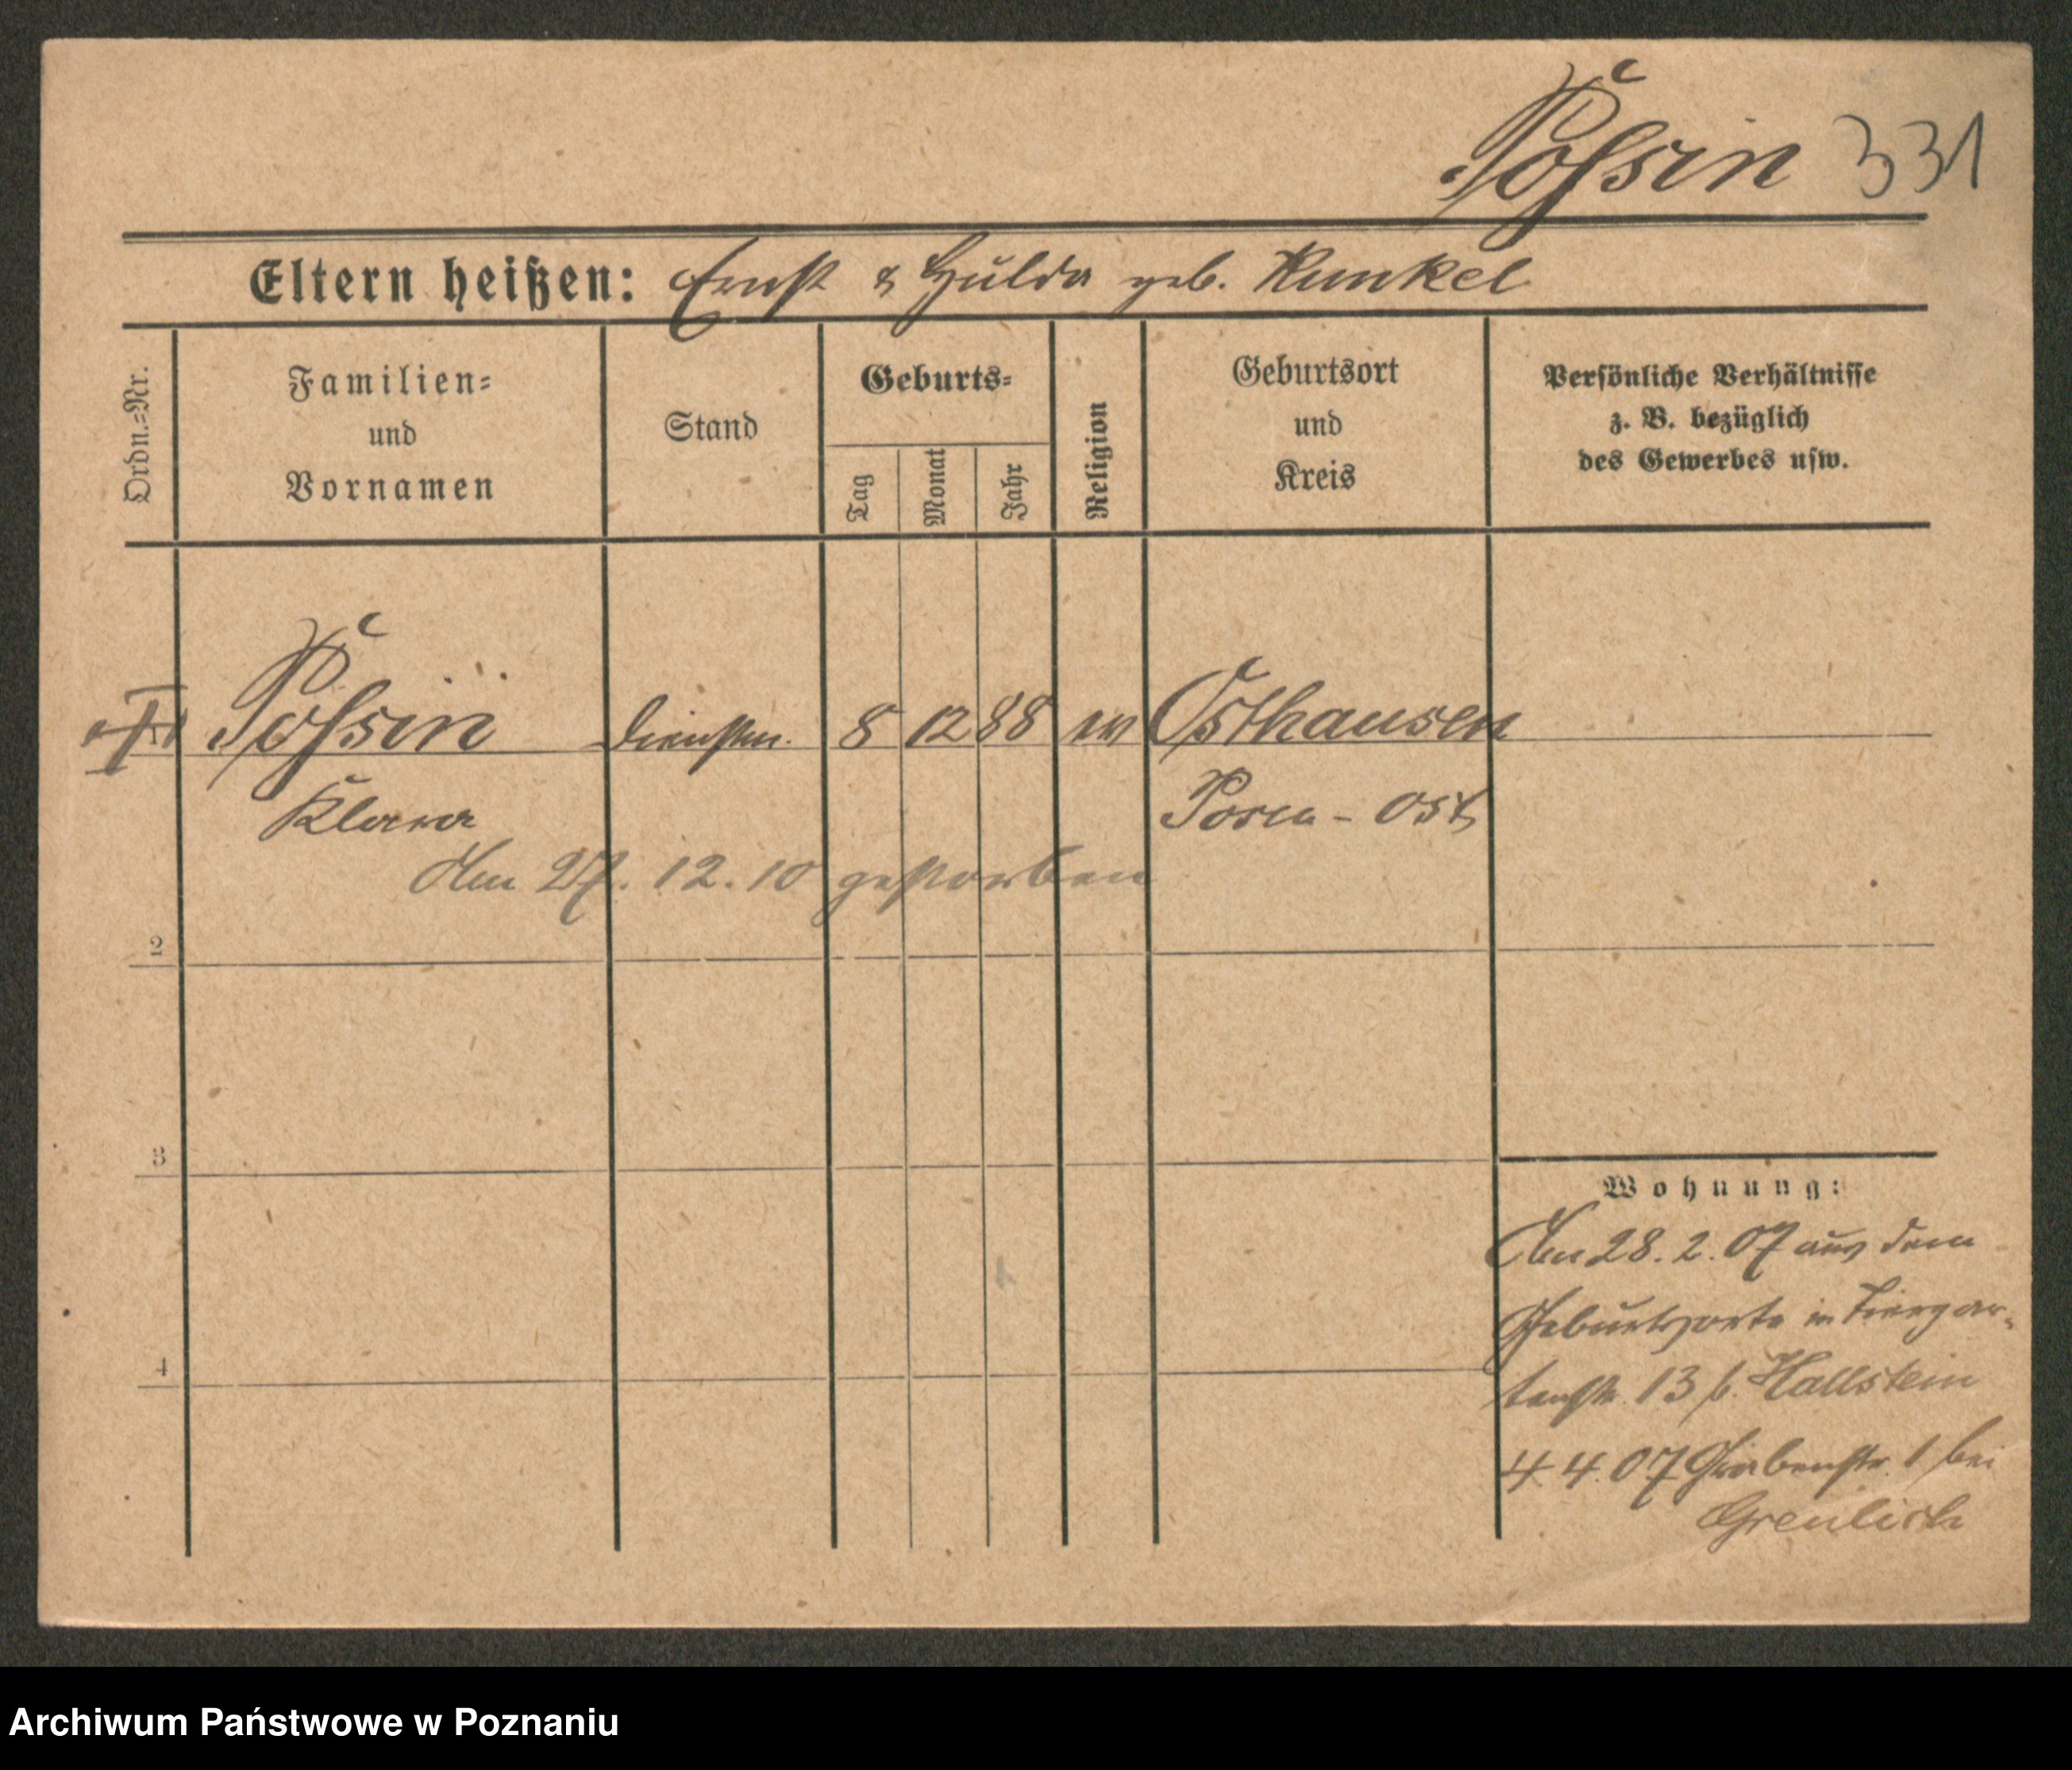 Poſsin 331
Eltern heißen: Ernst & Hulda geb. Kunkel
Ordn.=Nr.
Familien=
und
Vornamen
Stand
Geburts=
Tag
Monat
Jahr
Religion
Geburtsort
und
Kreis
Persönliche Verhältnisse
z. B. bezüglich
des Gewerbes usw.
Poſsin Dienstm. 8 12 88 ev Osthausen
Klara Posen - Ost
Am 27. 12. 10 gestorben
2
3
4
Wohnung:
Am 28. 2. 07 aus dem
Geburtsorte in Tiergar-
tenstr. 13 b. Hallstein
4. 4. 07 Grabenstr. 1 bei
Greulich
Archiwum Państwowe w Poznaniu